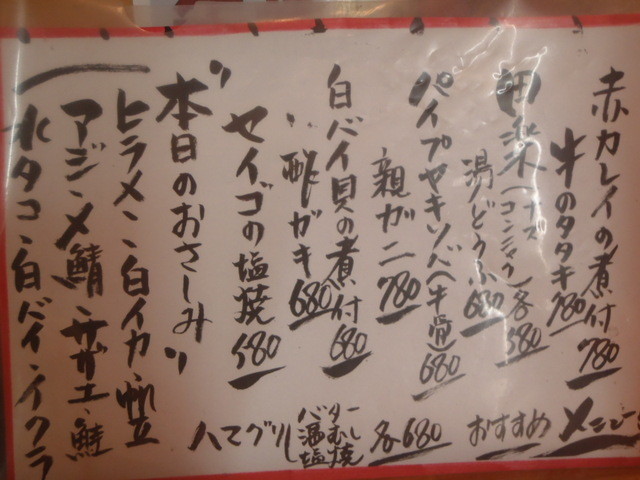 赤カレイの煮付 780
牛のタタキ 780
田楽(ナス コンニャク)各380
湯どうふ 680
パイプヤキソバ(牛骨)680
親ガニ 780
白バイ貝の煮付 680
〃酢ガキ 680
セイゴの塩焼 580
"本日のおさしみ"
ヒラメ・白イカ・帆立
アジ・〆鯖・サザエ・鮭
水タコ・白バイ・イクラ
おすすめ メニュー
ハマグリ バター 酒むし 塩焼 各680